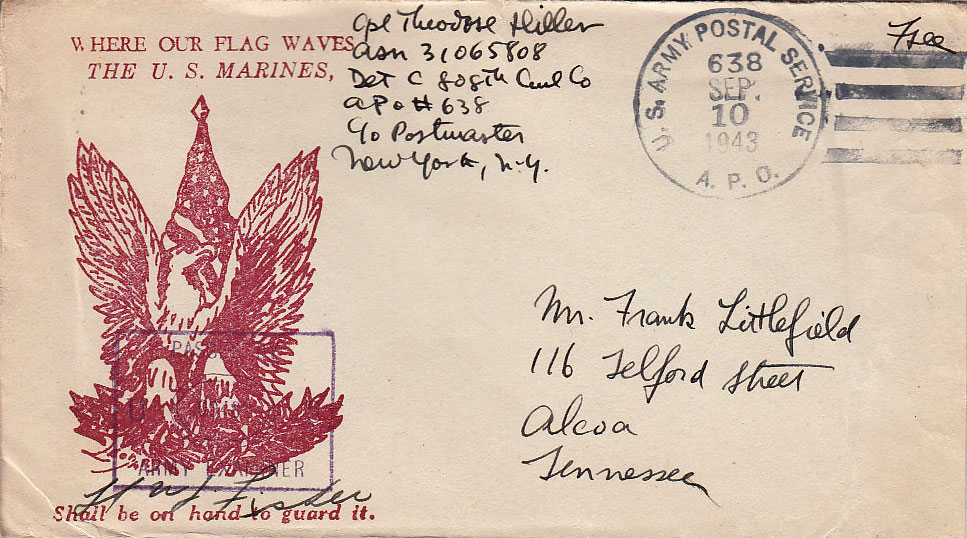 WHERE OUR FLAG WAVES
THE U. S. MARINES,
Cpl Theodore Hiller
ASN 31065808
Det C 808th Co
APO # 638
c/o Postmaster
New York, N.Y.
U. S. ARMY POSTAL SERVICE
638
SEP.
10
1943
A. P. O.
Free
Mr. Frank Littlefield
116 Telford Street
Alcoa
Tennessee
PASSED
ARMY EXAMINER
Shall be on hand to guard it.